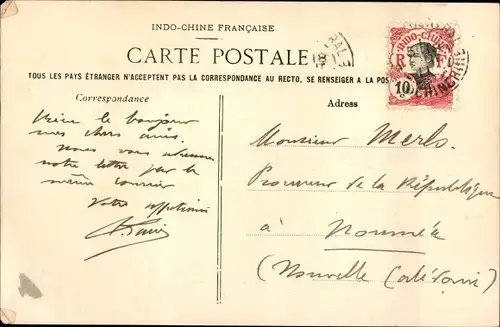 INDO-CHINE FRANÇAISE
CARTE POSTALE
TOUS LES PAYS ÉTRANGER N'ACCEPTENT PAS LA CORRESPONDANCE AU RECTO, SE RENSEIGER A LA POS
Correspondance
Adresse
INDO-CHINE
R F
10
le bonjour
mes chers amis.
Nous vous
notre lettre par le
même courrier
Votre
Monsieur Merlo.
Procureur de la République
à Nouméa
(Nouvelle Calédonie)